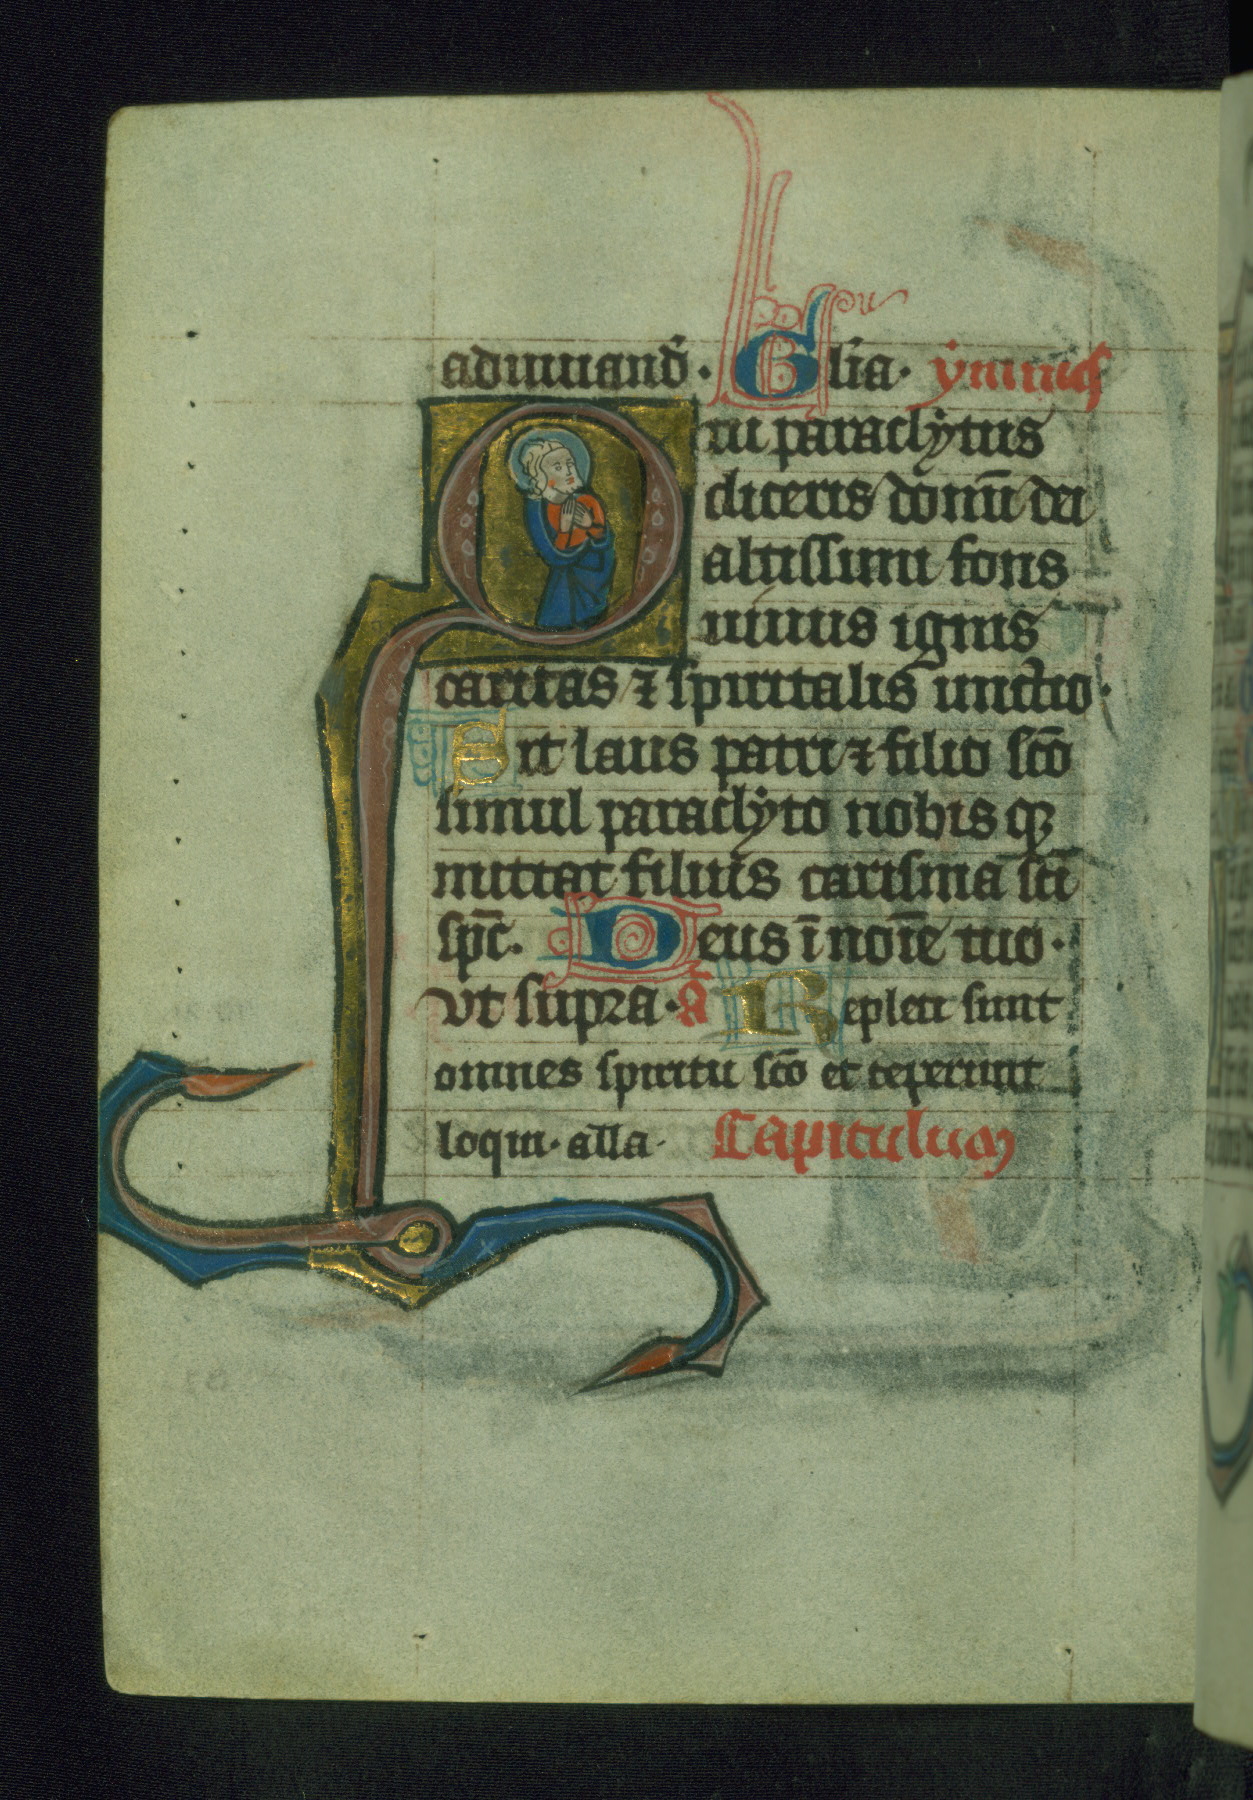 adiuuand̄. Gl̄ia. ẏmnus
Qui paraclẏtus
diceris donū dei
altissimi fons
uiuus ignis
caritas ⁊ spiritalis unctio.
Sit laus patri ⁊ filio sc̄o
simul paraclẏto nobis qꝫ
mittat filius carisma sc̄i
sp̄c. Deus ī no͞ie tuo.
vt supra. a͞ Repleti sunt
omnes spiritu sc̄o et ceperunt
loqui. alla. Capitulum